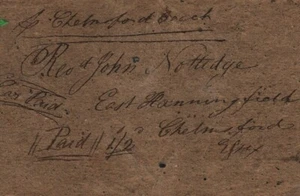 p Chelmsford Coach
Revd John Nottidge
Car Paid
East Hanningfield
Chelmsford
Paid 1/2
Essex